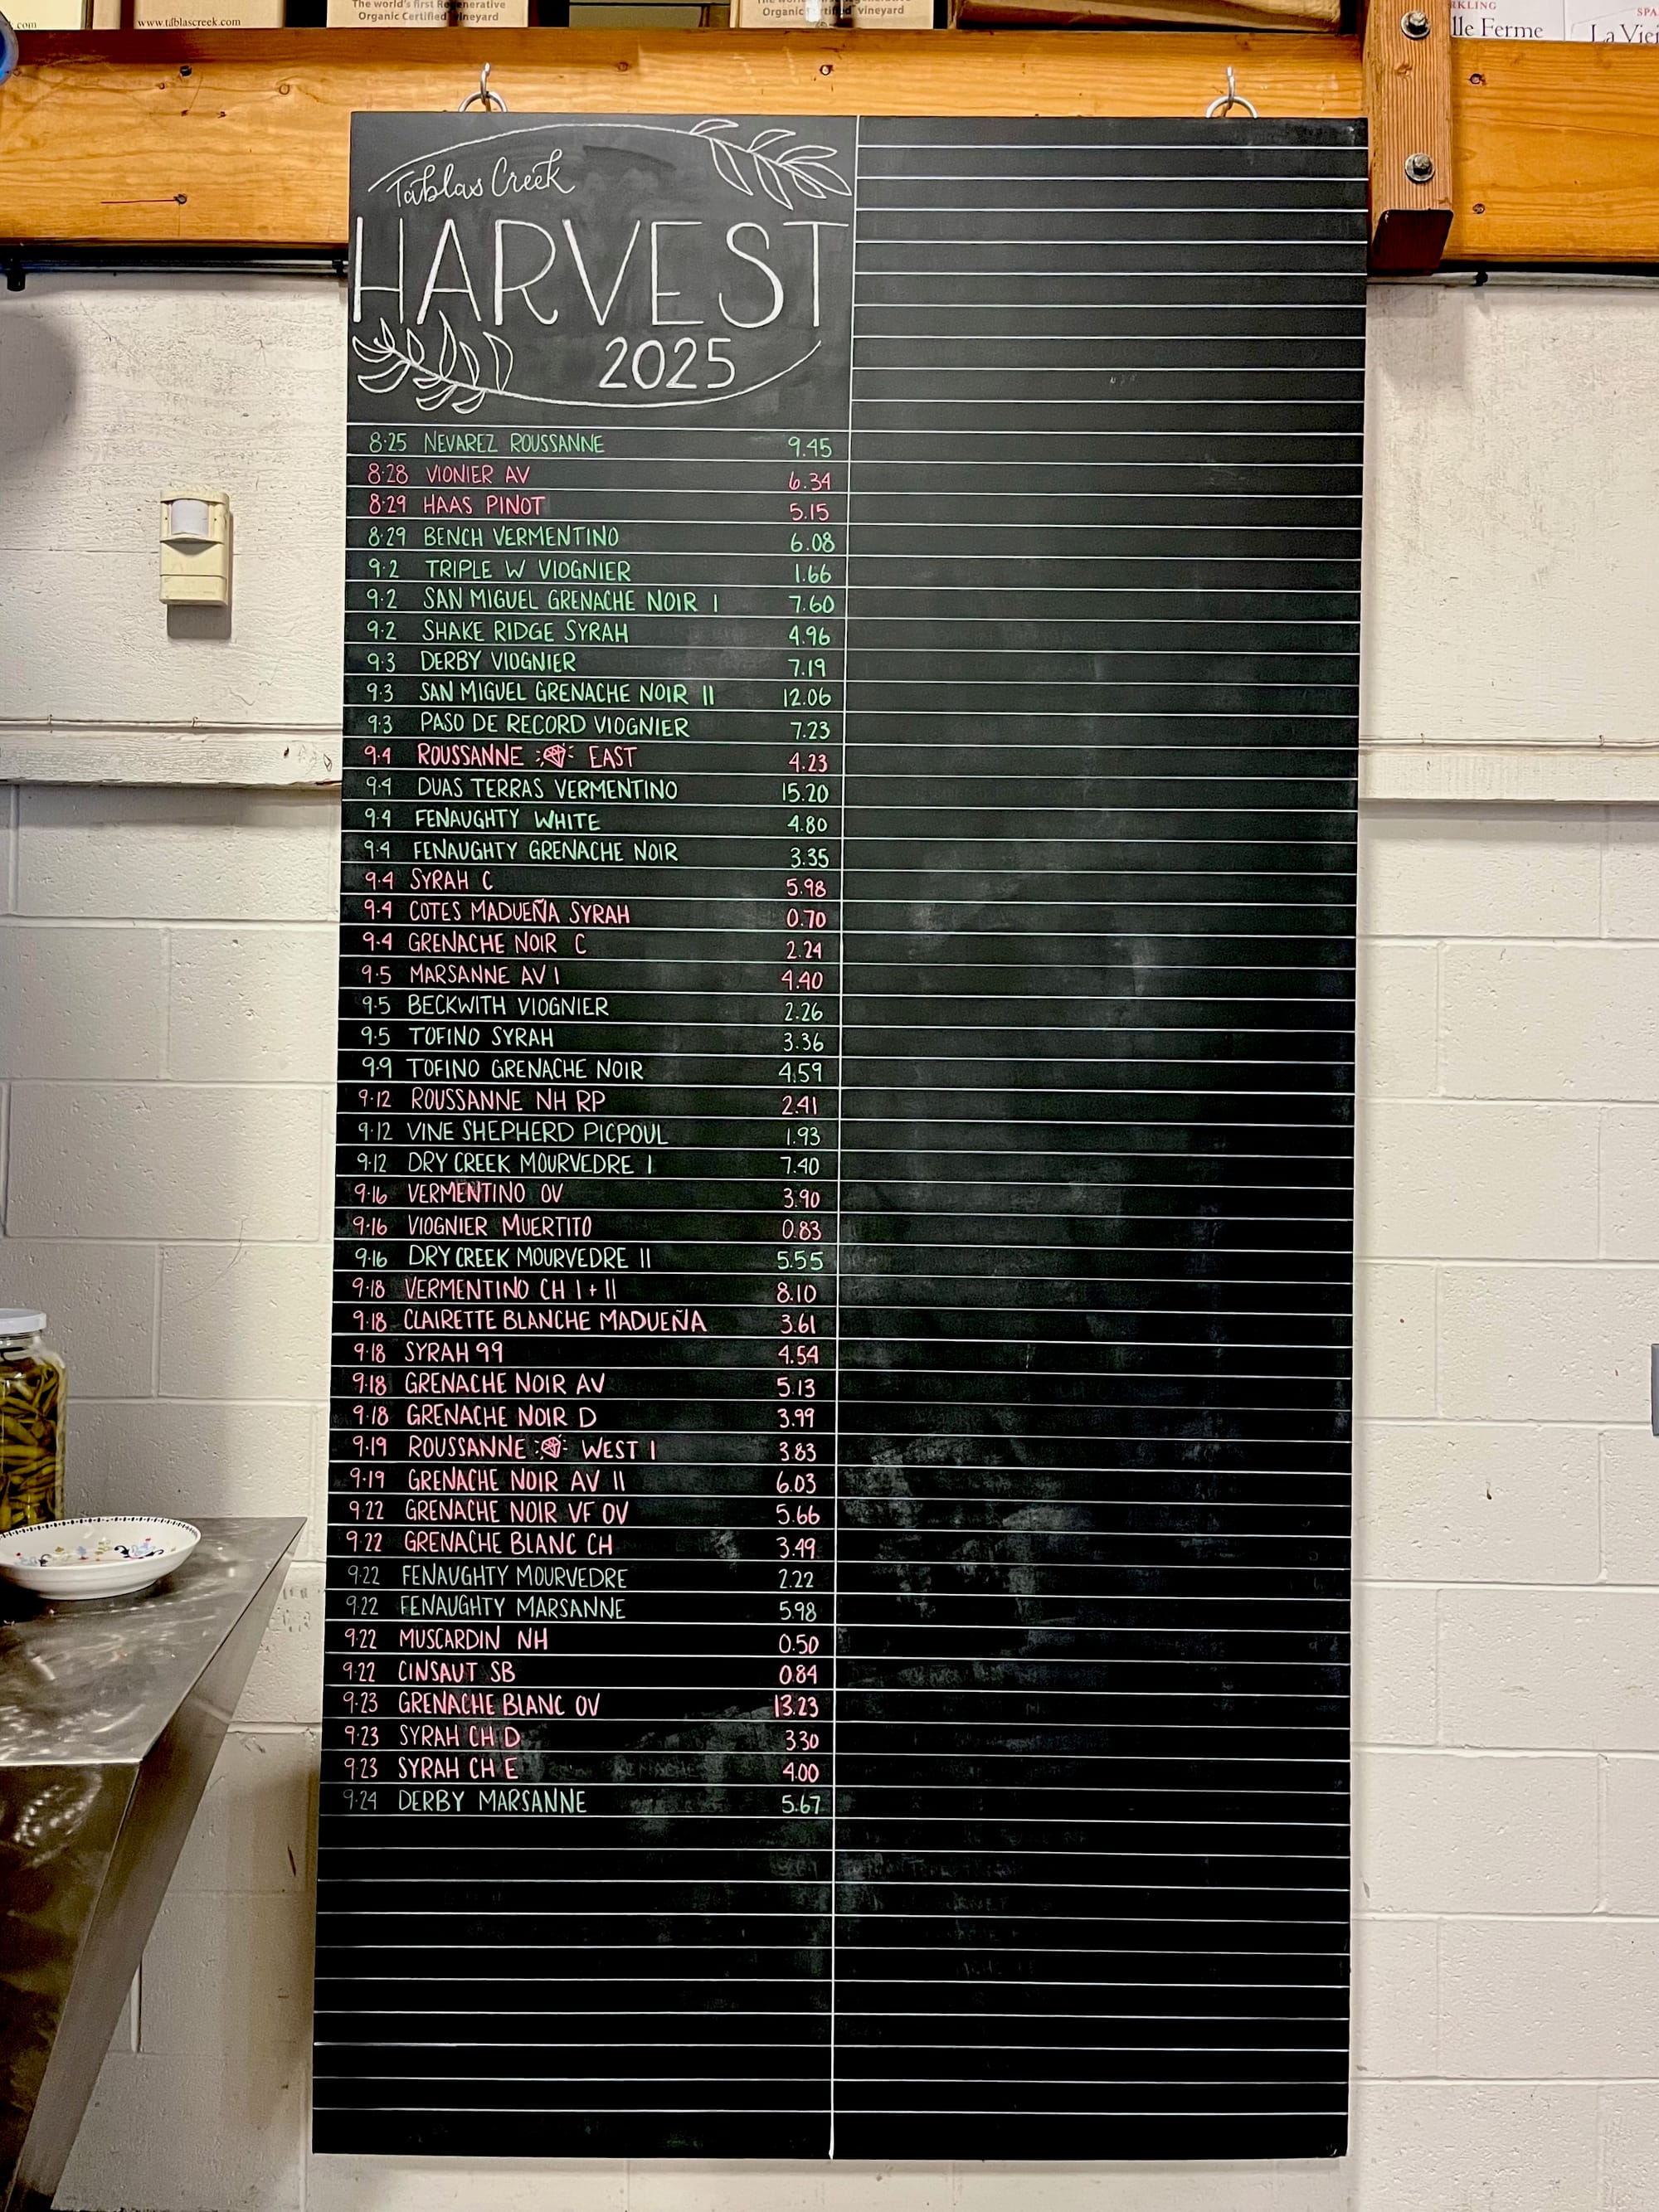 .com
www.tablascreek.com
The world's first Regenerative
Organic Certified vineyard
Organic Certified vineyard
RKLING
lle Ferme
SPA
La Viei
Tablas Creek
HARVEST
2025
8·25 NEVAREZ ROUSSANNE 9.45
8·28 VIONIER AV 6.34
8·29 HAAS PINOT 5.15
8·29 BENCH VERMENTINO 6.08
9·2 TRIPLE W VIOGNIER 1.66
9·2 SAN MIGUEL GRENACHE NOIR I 7.60
9·2 SHAKE RIDGE SYRAH 4.96
9·3 DERBY VIOGNIER 7.19
9·3 SAN MIGUEL GRENACHE NOIR II 12.06
9·3 PASO DE RECORD VIOGNIER 7.23
9·4 ROUSSANNE EAST 4.23
9·4 DUAS TERRAS VERMENTINO 15.20
9·4 FENAUGHTY WHITE 4.80
9·4 FENAUGHTY GRENACHE NOIR 3.35
9·4 SYRAH C 5.98
9·4 COTES MADUEÑA SYRAH 0.70
9·4 GRENACHE NOIR C 2.24
9·5 MARSANNE AV I 4.40
9·5 BECKWITH VIOGNIER 2.26
9·5 TOFINO SYRAH 3.36
9·9 TOFINO GRENACHE NOIR 4.59
9·12 ROUSSANNE NH RP 2.41
9·12 VINE SHEPHERD PICPOUL 1.93
9·12 DRY CREEK MOURVEDRE I 7.40
9·16 VERMENTINO OV 3.90
9·16 VIOGNIER MUERTITO 0.83
9·16 DRY CREEK MOURVEDRE II 5.55
9·18 VERMENTINO CH I + II 8.10
9·18 CLAIRETTE BLANCHE MADUEÑA 3.61
9·18 SYRAH 99 4.54
9·18 GRENACHE NOIR AV 5.13
9·18 GRENACHE NOIR D 3.99
9·19 ROUSSANNE WEST I 3.83
9·19 GRENACHE NOIR AV II 6.03
9·22 GRENACHE NOIR VF OV 5.66
9·22 GRENACHE BLANC CH 3.49
9·22 FENAUGHTY MOURVEDRE 2.22
9·22 FENAUGHTY MARSANNE 5.98
9·22 MUSCARDIN NH 0.50
9·22 CINSAUT SB 0.84
9·23 GRENACHE BLANC OV 13.23
9·23 SYRAH CH D 3.30
9·23 SYRAH CH E 4.00
9·24 DERBY MARSANNE 5.67